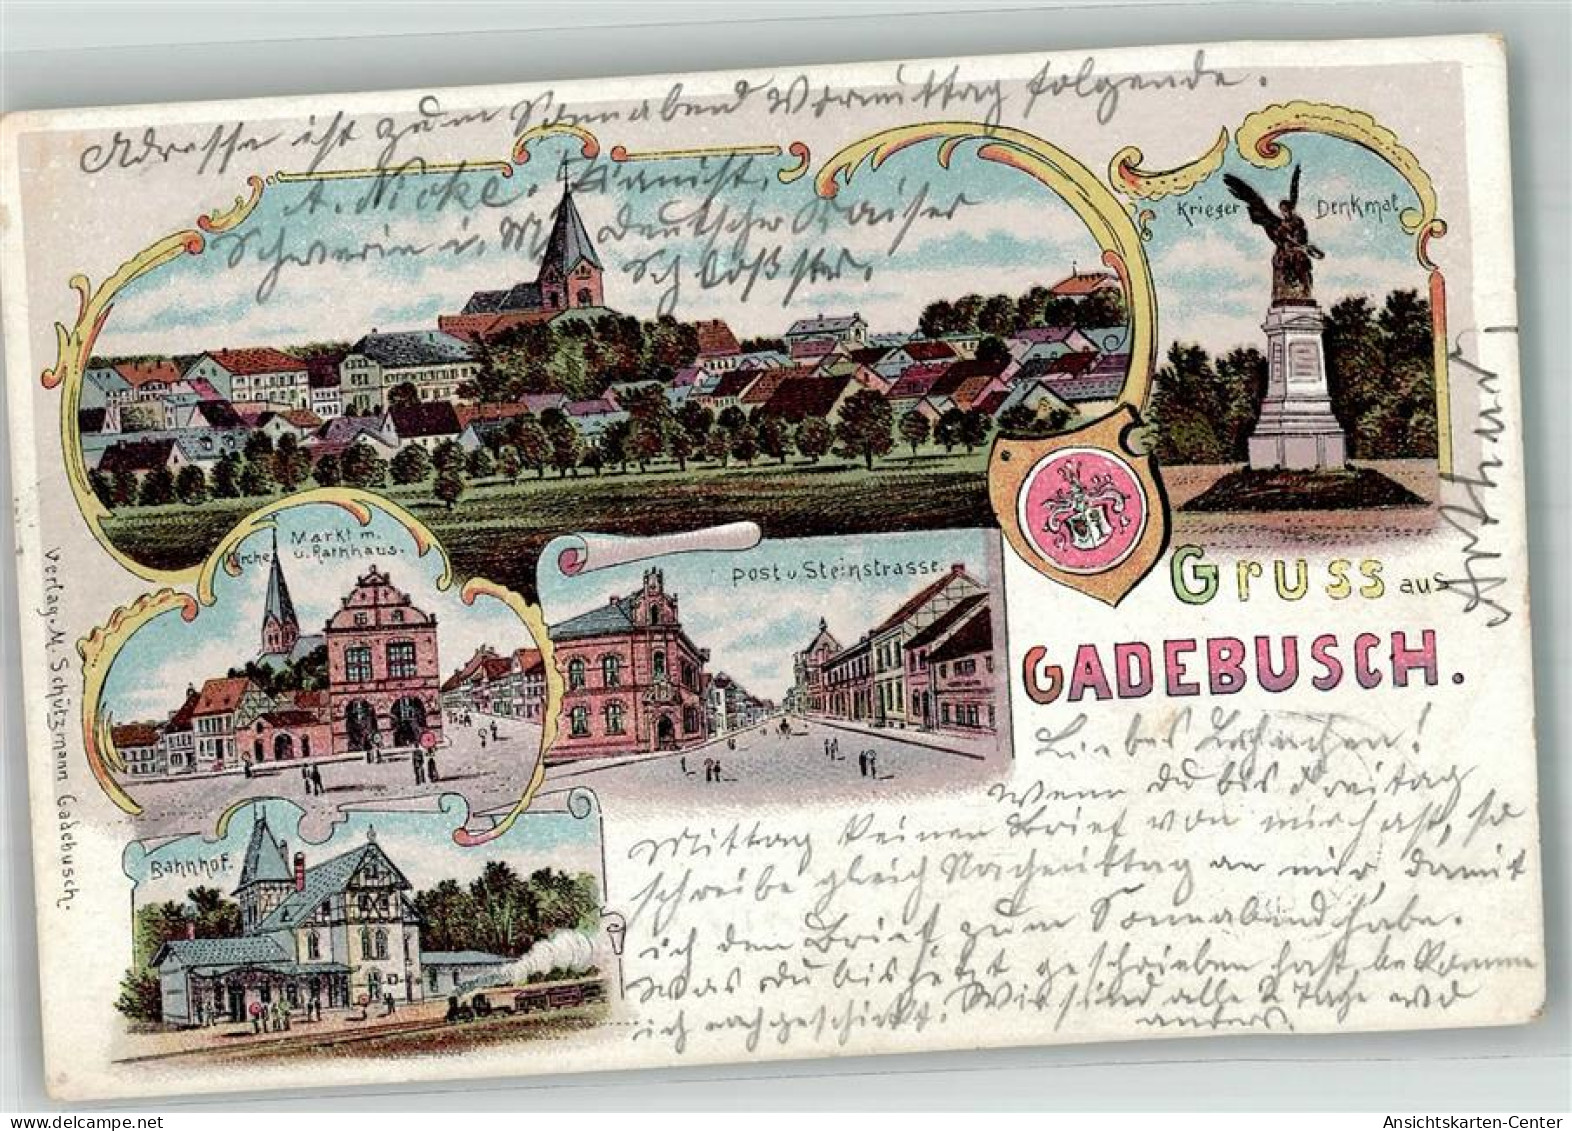 Adresse ist zum Sonnabend Vormittag folgende.
A. Nicke. Pianist.
Schwerin i. M. deutscher Kaiser
Schloßstr.
Krieger Denkmal
Kirche Markt m. u. Rathhaus.
Post u Steinstrasse.
Gruss aus
GADEBUSCH.
Arthur
Bahnhof.
Verlag. M. Schützmann Gadebusch.
Liebes !
Wenn Du bis Freitag
Mittag keinen Brief von mir hast, so
schreibe gleich Nachmittag an mir, damit
ich den Brief zum Sonnabend habe.
Was Du bis jetzt geschrieben hast, bekomme
ich nachgeschickt. Wir sind alle 2 Tage wo
anders.
Ansichtskarten-Center.com